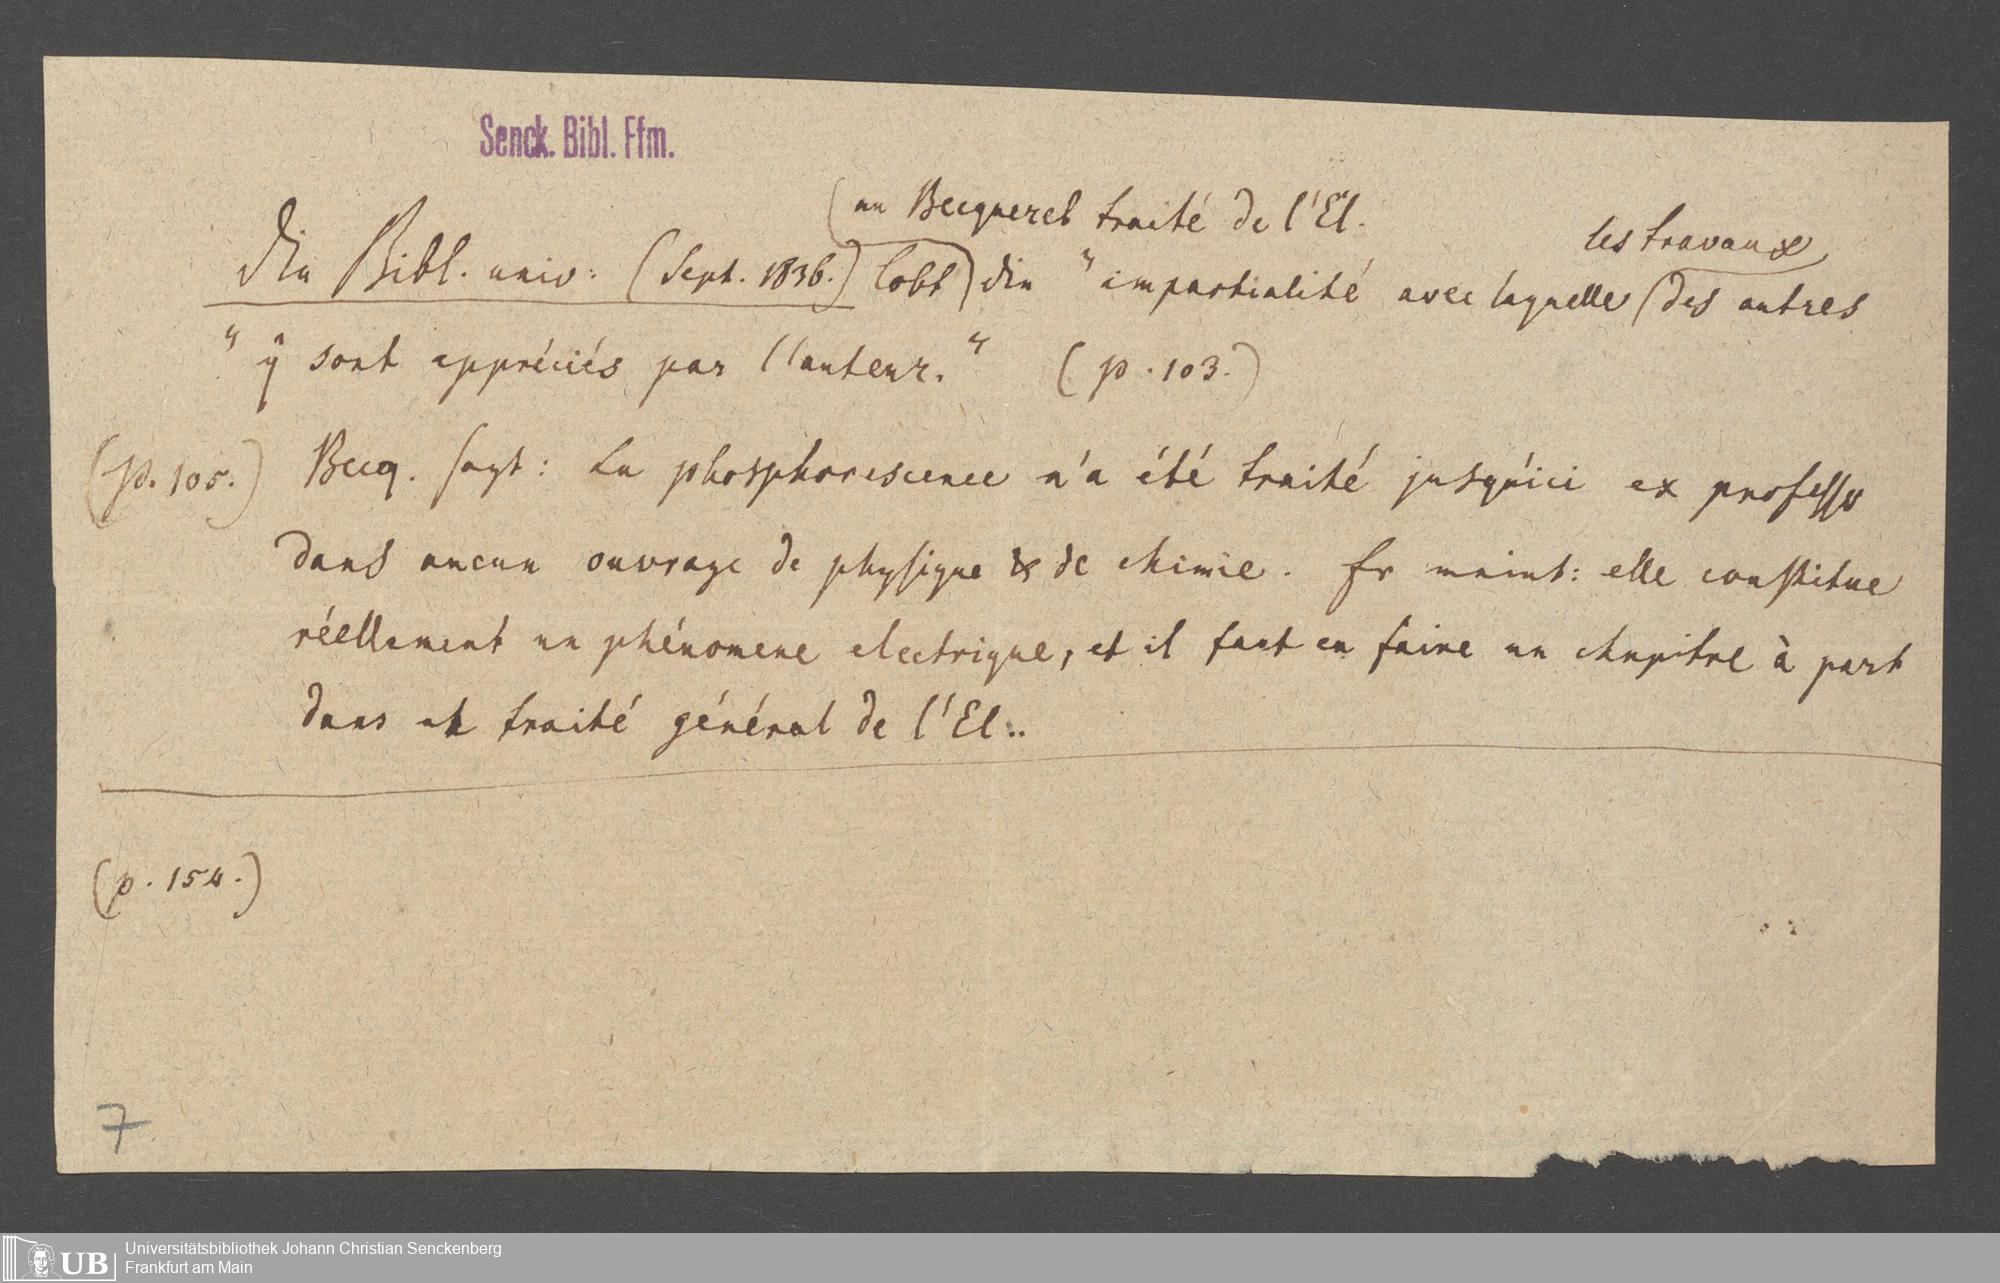 Senck. Bibl. Ffm.
an Becquerel traité de l'El.
les travaux
Die Bibl. univ: (Sept. 1836.) lobt die "impartialité avec laquelle des autres
" y sont appréciés par l'auteur." (p. 103.)
(p. 105.) Becq. sagt: La phosphorescence n'a été traité jusqu'ici ex professo
dans aucun ouvrage de physique & de chimie. Er meint: elle constitue
réellement un phénomene electrique, et il faut en faire un chapitre à part
dans un traité général de l'El..
(p. 154.)
7
UB
Universitätsbibliothek Johann Christian Senckenberg
Frankfurt am Main